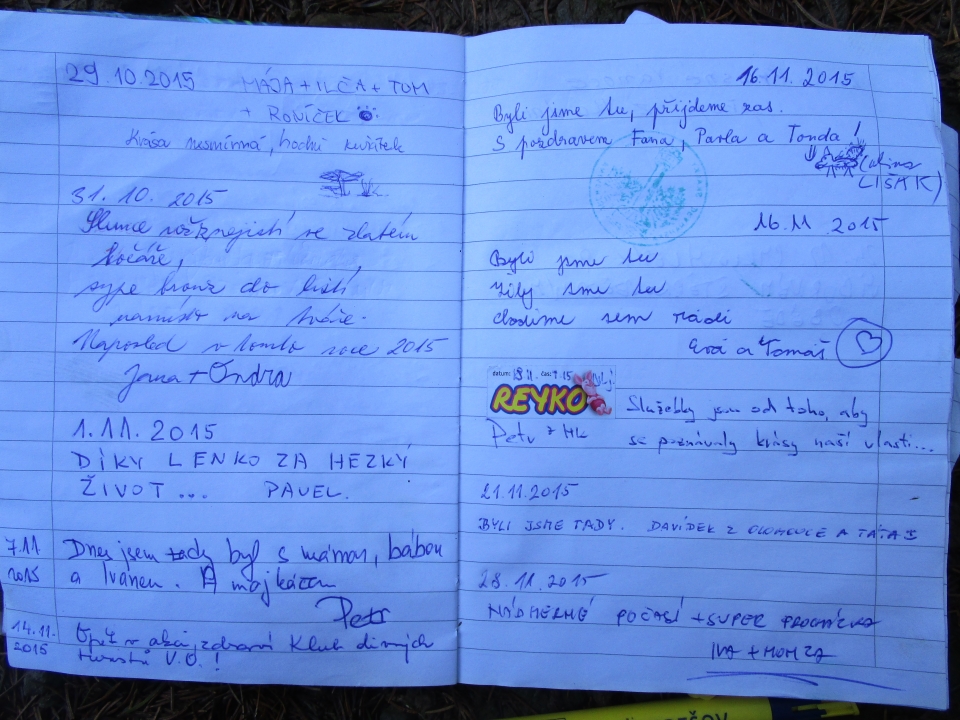 29.10.2015 MÁJA + ILČA + TOM
+ RONÍČEK
Krása nesmírná, hodní
31. 10. 2015
Slunce ve zlatém
kočáře,
sype bronz do listí
na tváře.
Naposled v tomto roce 2015
Jana + Ondra
1.11.2015
DÍKY LENKO ZA HEZKÝ
ŽIVOT ... PAVEL.
7.11 2015
Dnes jsem tady byl s mámou, bábou
a Ivanem. A můj kázou
Petr
14.11. 2015
Opět v akci zdraví Klub divných
turistů V.O. !
16.11. 2015
Byli jsme tu, přijdeme zas.
S pozdravem Fana, Pavla a Tonda!
LIŠÁK)
16.11.2015
Byli jsme tu
Žily sme tu
chodíme sem rádi
Eva a Tomáš
datum: čas: 9.15
REYKO
Petr z HK
Služebky jsou od toho, aby
se poznávaly krásy naší vlasti...
21.11.2015
BYLI JSME TADY. DAVÍDEK Z OLOMOUCE A TÁTA
28.11.2015
NÁDHERNÉ POČASÍ + SUPER PROCHÁZKA
IVA + HONZA